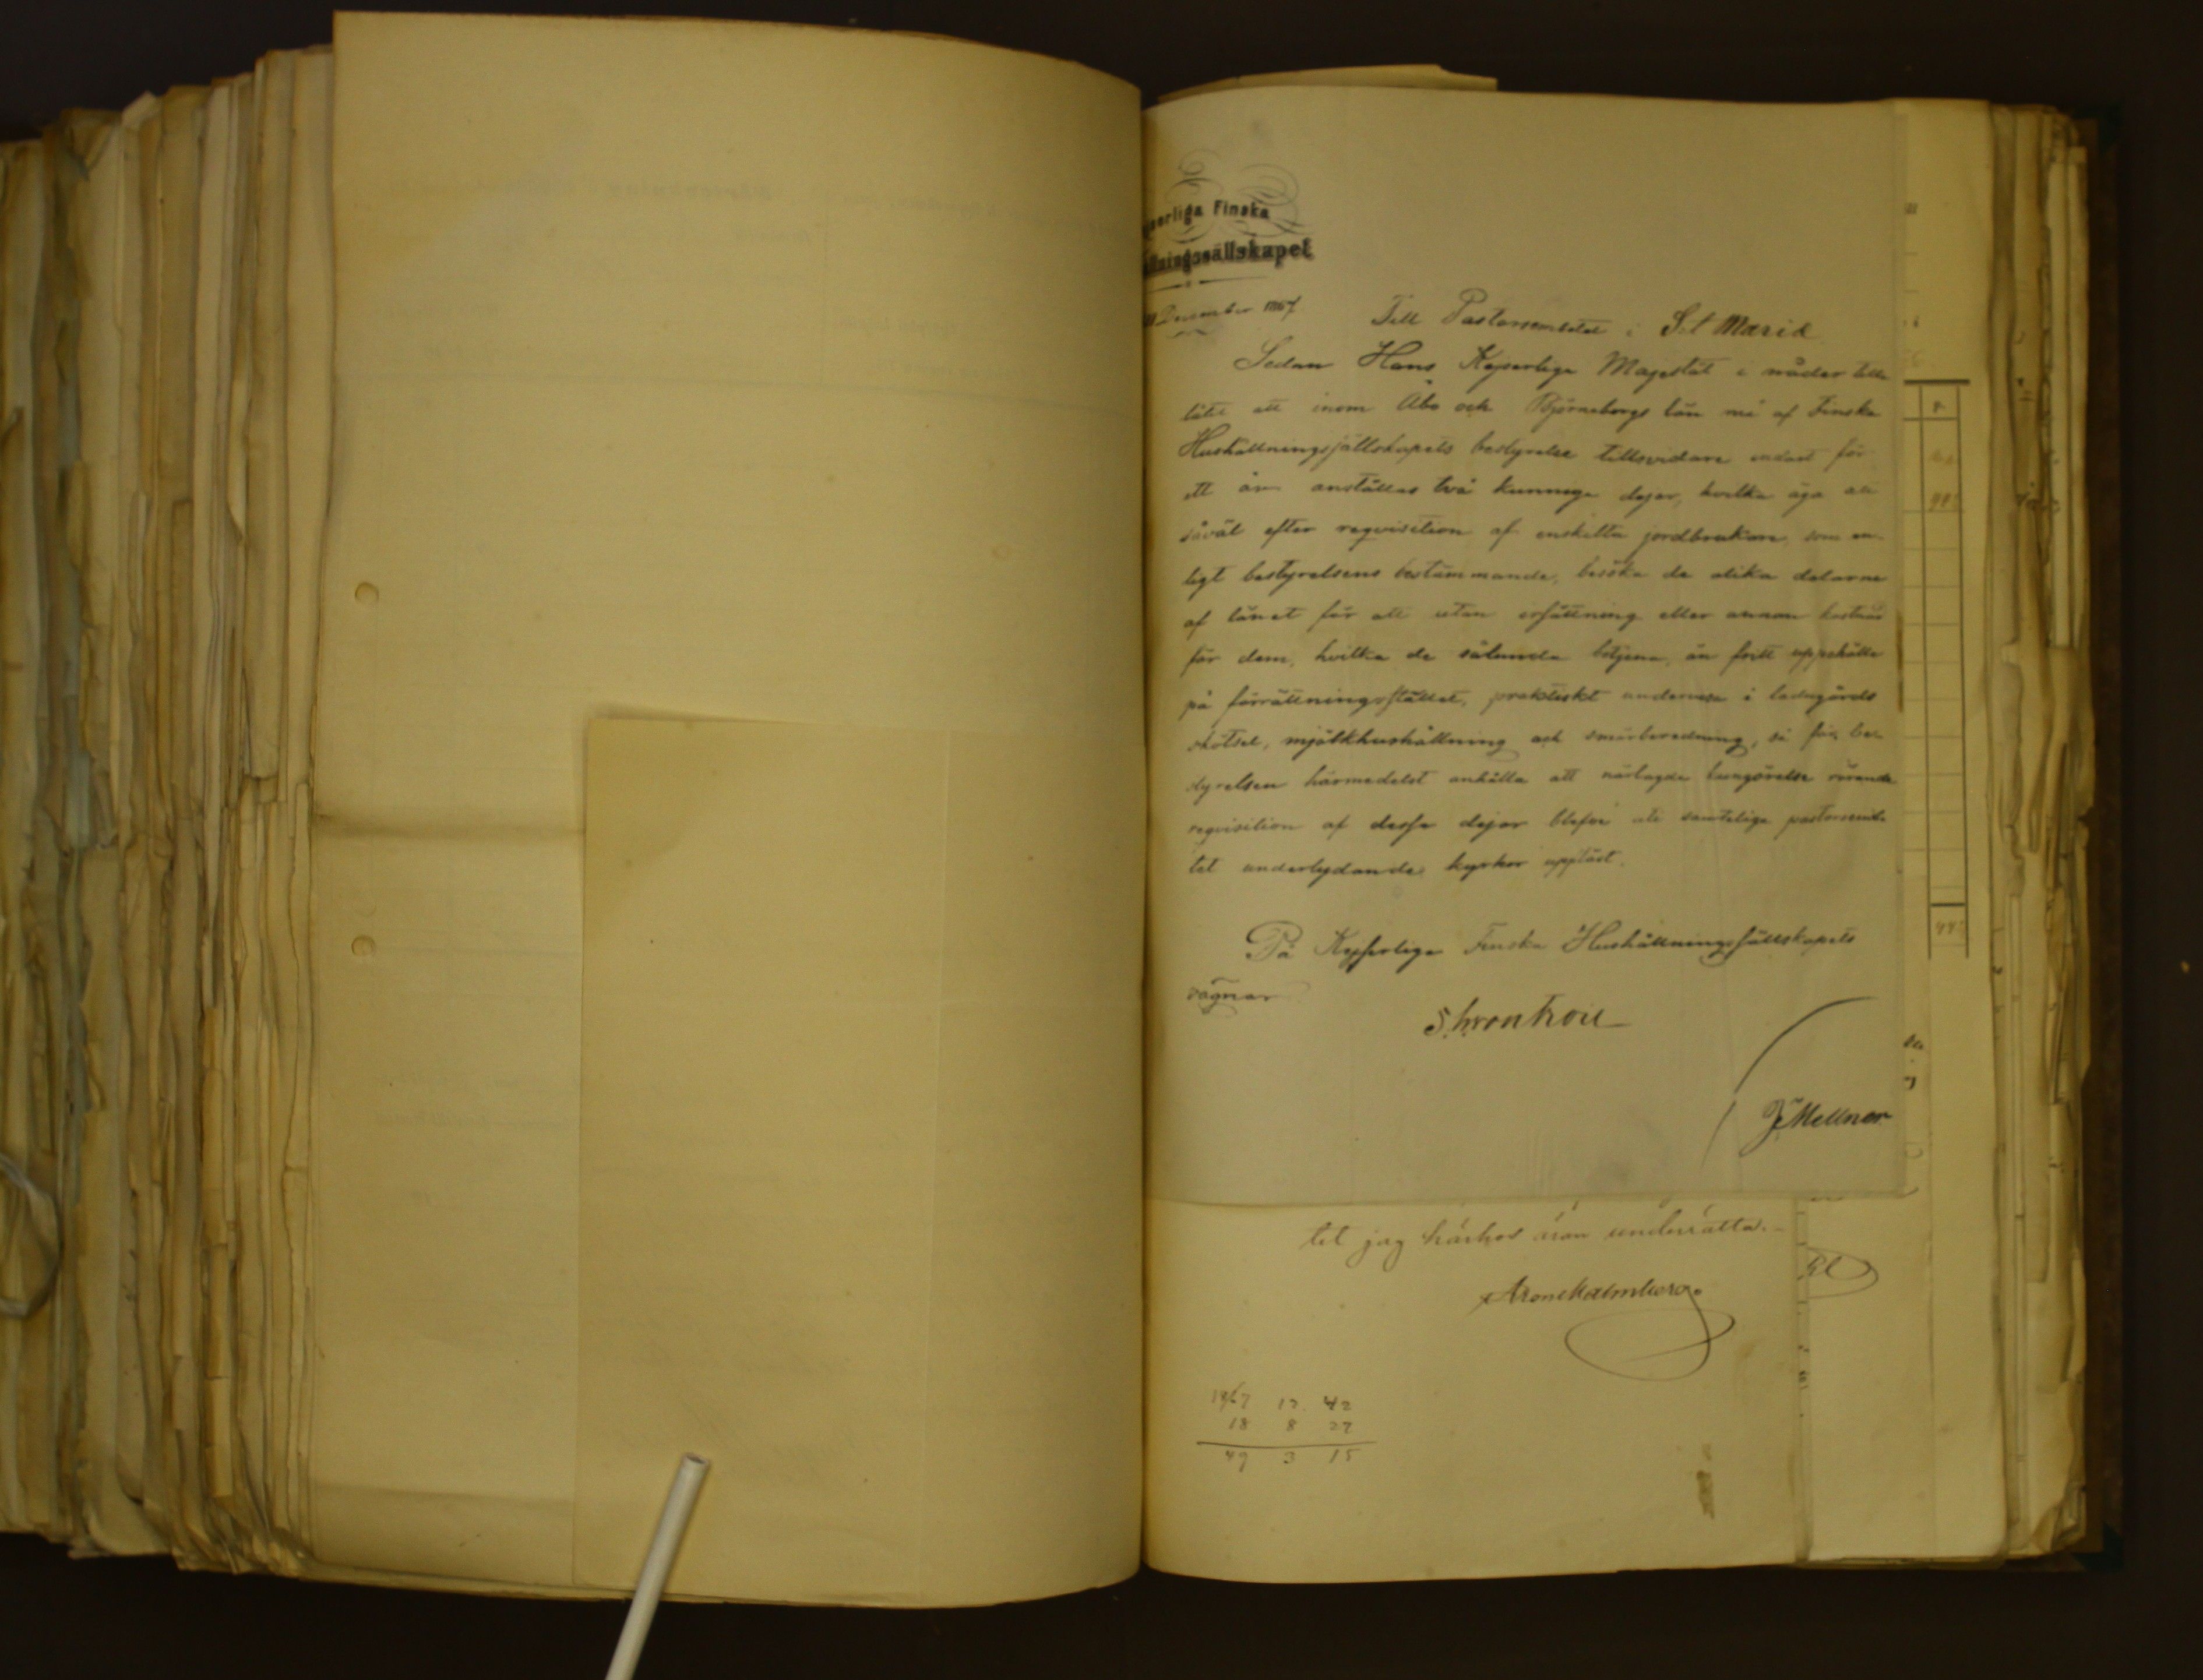 jserliga Finska
llningssällskapet
December 1867
Till Pastorsembetet i S:t Mariæ
Sedan Hans Kejserliga Majestät i nåder till
låtit att inom Åbo och Björneborgs län må af Finska
Hushållningssällskapets bestyrelse tillsvidare endast för
ett år anställas två kunniga dejor, hvilka äga att
såväl efter reqvisition af enskilta jordbrukare, som en-
ligt bestyrelsens bestämmande, besöka de olika delarne
af länet för att utan ersättning eller annan kostnad
för dem, hvilka de sålunda betjena, än fritt uppehälle
på förrättningsstället, praktiskt undervisa i ladugårds
skötsel, mjölkhushållning och smörberedning, så får be-
styrelsen härmedelst anhålla att närlagde kungörelse rörande
reqvisition af dessa dejor blefve uti samtelige pastorsembe
tet underlydande kyrkor uppläst.
På Kejserliga Finska Hushållningssällskapets
vägnar
S. W. von Troil
Mellner
tet jag härhos äran underrätta.
Aron Malmberg
1867 12 42
18 8 27
49 3 15